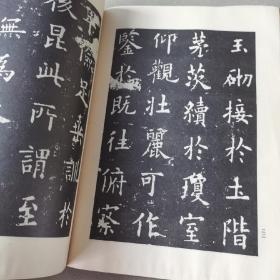 玉砌接於土階
茅茨續於瓊室
仰觀壯麗可作
鑒於既往俯察
卑儉足垂訓於
後昆此所謂至
無為